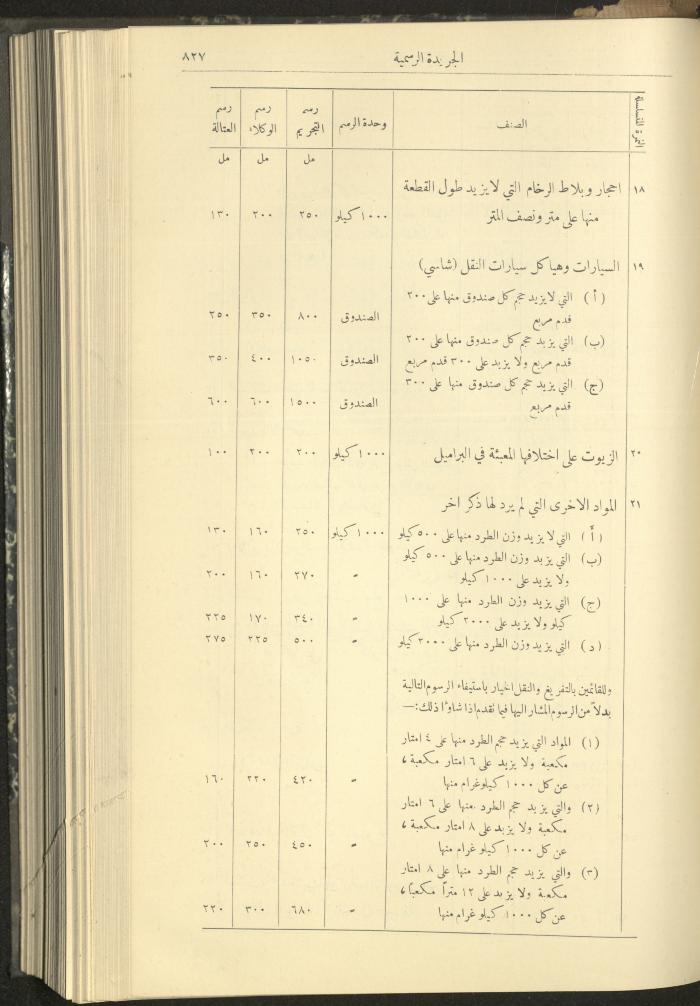 الجريدة الرسمية ٨٢٧
النمرة المتسلسلة الصنف وحدة الرسم رسم التجريم رسم الوكلاء رسم العتالة
مل مل مل
١٨ احجار وبلاط الرخام التي لا يزيد طول القطعة
منها على متر ونصف المتر ١٠٠٠ كيلو ٢٥٠ ٢٠٠ ١٣٠
١٩ السيارات وهياكل سيارات النقل (شاسي)
(أ) التي لا يزيد حجم كل صندوق منها على ٢٠٠
قدم مربع الصندوق ٨٠٠ ٣٥٠ ٢٥٠
(ب) التي يزيد حجم كل صندوق منها على ٢٠٠
قدم مربع ولا يزيد على ٣٠٠ قدم مربع الصندوق ١٠٥٠ ٤٠٠ ٣٥٠
(ج) التي يزيد حجم كل صندوق منها على ٣٠٠
قدم مربع الصندوق ١٥٠٠ ٦٠٠ ٦٠٠
٢٠ الزيوت على اختلافها المعبئة في البراميل ١٠٠٠ كيلو ٢٠٠ ٢٠٠ ١٠٠
٢١ المواد الاخرى التي لم يرد لها ذكر اخر
(أ) التي لا يزيد وزن الطرد منها على ٥٠٠ كيلو ١٠٠٠ كيلو ٢٥٠ ١٦٠ ١٣٠
(ب) التي يزيد وزن الطرد منها على ٥٠٠ كيلو
ولا يزيد على ١٠٠٠ كيلو " ٢٧٠ ١٦٠ ٢٠٠
(ج) التي يزيد وزن الطرد منها على ١٠٠٠
كيلو ولا يزيد على ٢٠٠٠ كيلو " ٣٤٠ ١٧٠ ٢٢٥
(د) التي يزيد وزن الطرد منها على ٢٠٠٠ كيلو " ٥٠٠ ٢٢٥ ٢٧٥
وللقائمين بالتفريغ والنقل الخيار باستيفاء الرسوم التالية
بدلاً من الرسوم المشار اليها فيما تقدم اذا شاؤا ذلك:—
(١) المواد التي يزيد حجم الطرد منها على ٤ امتار
مكعبة ولا يزيد على ٦ امتار مكعبة،
عن كل ١٠٠٠ كيلوغرام منها " ٤٢٠ ٢٢٠ ١٦٠
(٢) والتي يزيد حجم الطرد منها على ٦ امتار
مكعبة ولا يزيد على ٨ امتار مكعبة،
عن كل ١٠٠٠ كيلو غرام منها " ٤٥٠ ٢٥٠ ٢٠٠
(٣) والتي يزيد حجم الطرد منها على ٨ امتار
مكعبة ولا يزيد على ١٢ متراً مكعباً،
عن كل ١٠٠٠ كيلو غرام منها " ٦٨٠ ٣٠٠ ٢٢٠